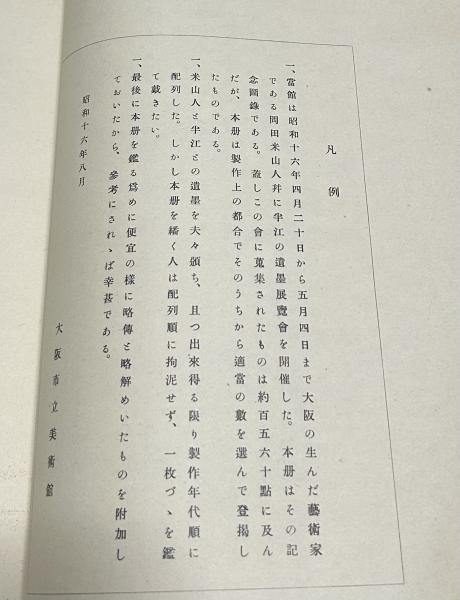 凡例
一、當館は昭和十六年四月二十日から五月四日まで大阪の生んだ藝術家
である岡田米山人幷に半江の遺墨展覽會を開催した。本册はその記
念圖錄である。蓋しこの會に蒐集されたものは約百五六十點に及ん
だが、本册は製作上の都合でそのうちから適當の數を選んで登揭し
たものである。
一、米山人と半江との遺墨を夫々頒ち、且つ出來得る限り製作年代順に
配列した。しかし本册を繙く人は配列順に拘泥せず、一枚づゝを鑑
て戴きたい。
一、最後に本册を鑑る爲めに便宜の樣に略傳と略解めいたものを附加し
ておいたから、參考にされゝば幸甚である。
昭和十六年八月
大阪市立美術館